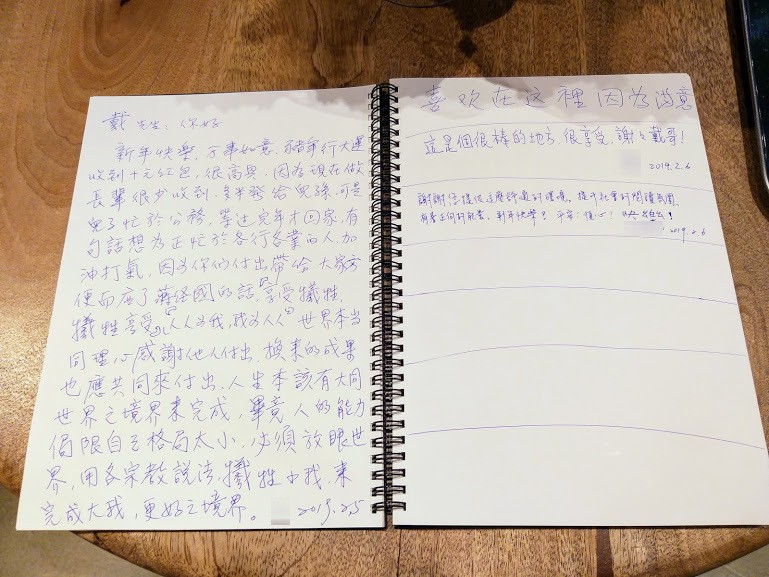 戴先生:你好
新年快樂,万事如意,豬年行大運
收到十元紅包,很高興,因為現在做
長輩很少收到,多半發給兒孫,可是
兒子忙於公務,無法定年才回家,有
句話想為正忙於各行各業的人加
油打氣,因為你們付出帶給大家方
便而應了蔣經國的話,「享受犧牲,
犧牲享受」「人人为我,我为人人」世界本当
同理心感謝他人付出,換來的成果
也應共同來付出,人生本該有大同
世界之境界來完成,畢竟人的能力
侷限自己格局太小,必須放眼世
界,用各宗教說法,犧牲小我,來
完成大我,更好之境界。 2019.2.5
喜欢在这裡因為滿意
這是個很棒的地方,很享受,謝謝戴哥!
2019.2.6
謝謝您提供這麼舒適的環境,提升社會的閱讀氛圍,
新年快樂!平安!順心!
2019.2.6